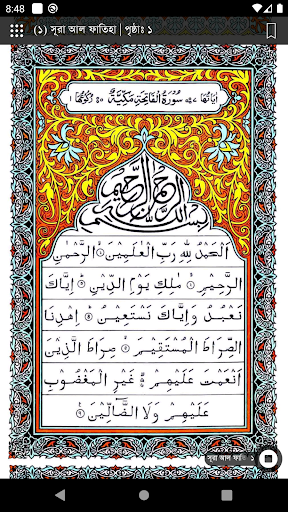 8:48
(১) সূরা আল ফাতিহা | পৃষ্ঠাঃ ১
سُوْرَةُ الْفَاتِحَةِ مَكِّيَّةٌ
بِسْمِ اللّٰهِ الرَّحْمٰنِ الرَّحِيْمِ
اَلْحَمْدُ لِلّٰهِ رَبِّ الْعٰلَمِيْنَ ۙ الرَّحْمٰنِ
الرَّحِيْمِ ۙ مٰلِكِ يَوْمِ الدِّيْنِ ۗ اِيَّاكَ
نَعْبُدُ وَاِيَّاكَ نَسْتَعِيْنُ ۗ اِهْدِنَا
الصِّرَاطَ الْمُسْتَقِيْمَ ۙ صِرَاطَ الَّذِيْنَ
اَنْعَمْتَ عَلَيْهِمْ ۙ غَيْرِ الْمَغْضُوْبِ
عَلَيْهِمْ وَلَا الضَّآلِّيْنَ
সূরা আল ফাতি